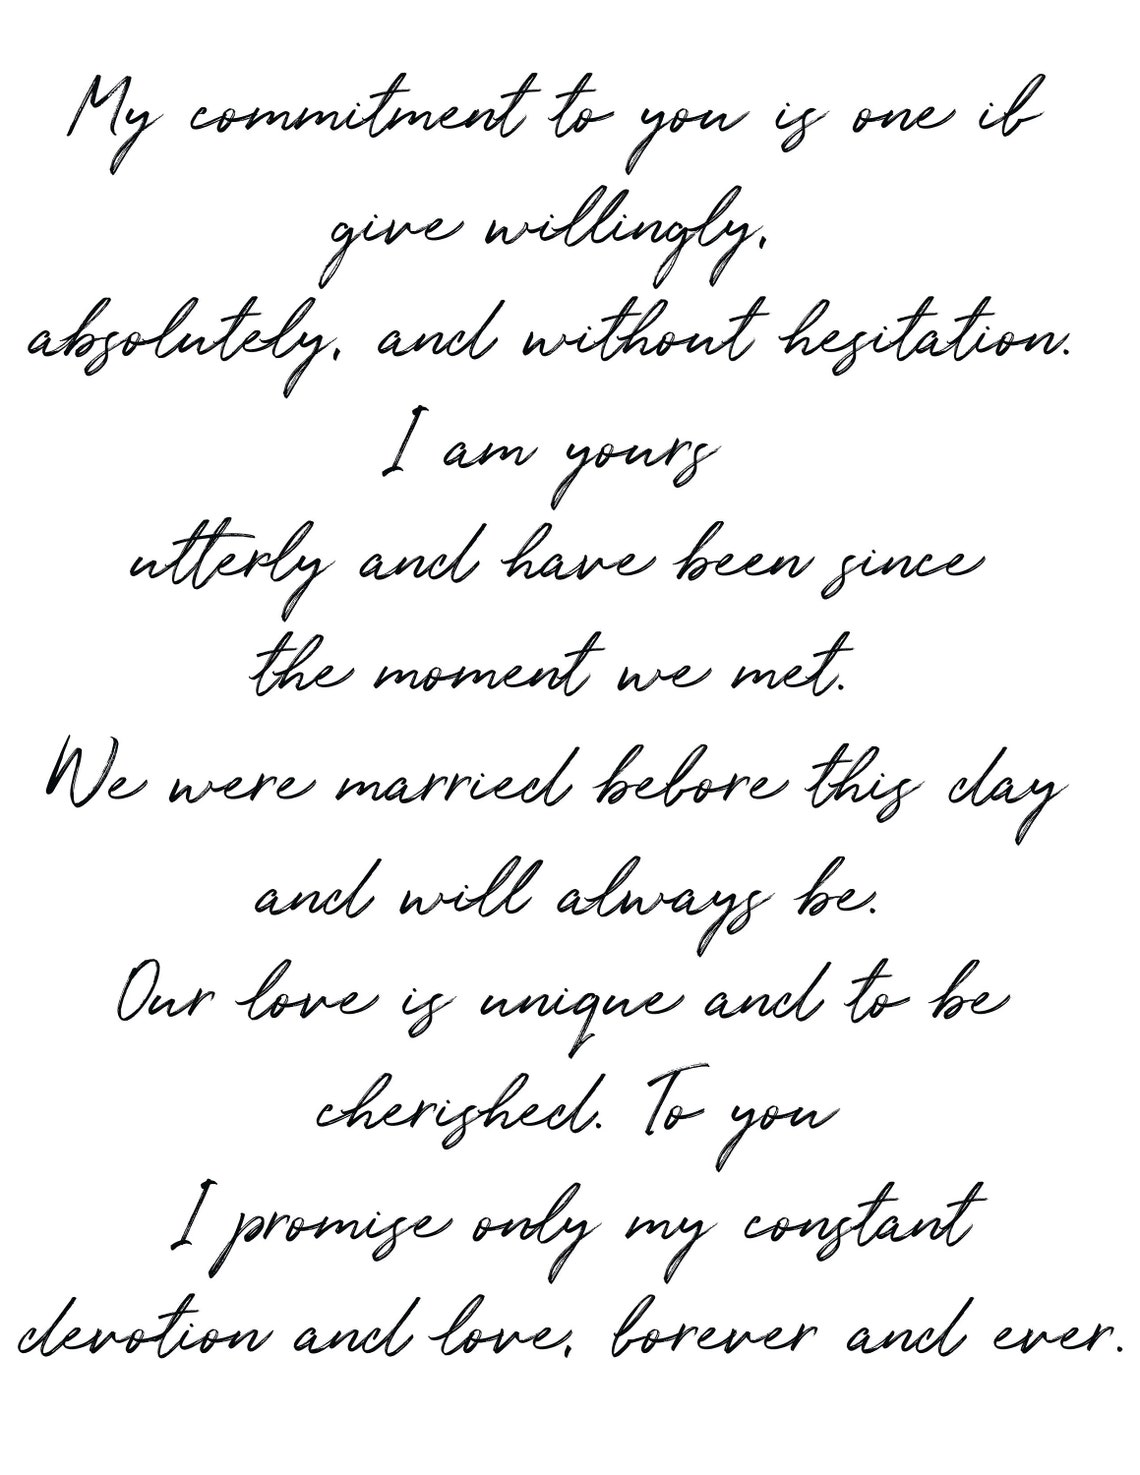 My commitment to you is one if
give willingly,
absolutely, and without hesitation.
I am yours
utterly and have been since
the moment we met.
We were married before this day
and will always be.
Our love is unique and to be
cherished. To you
I promise only my constant
devotion and love, forever and ever.